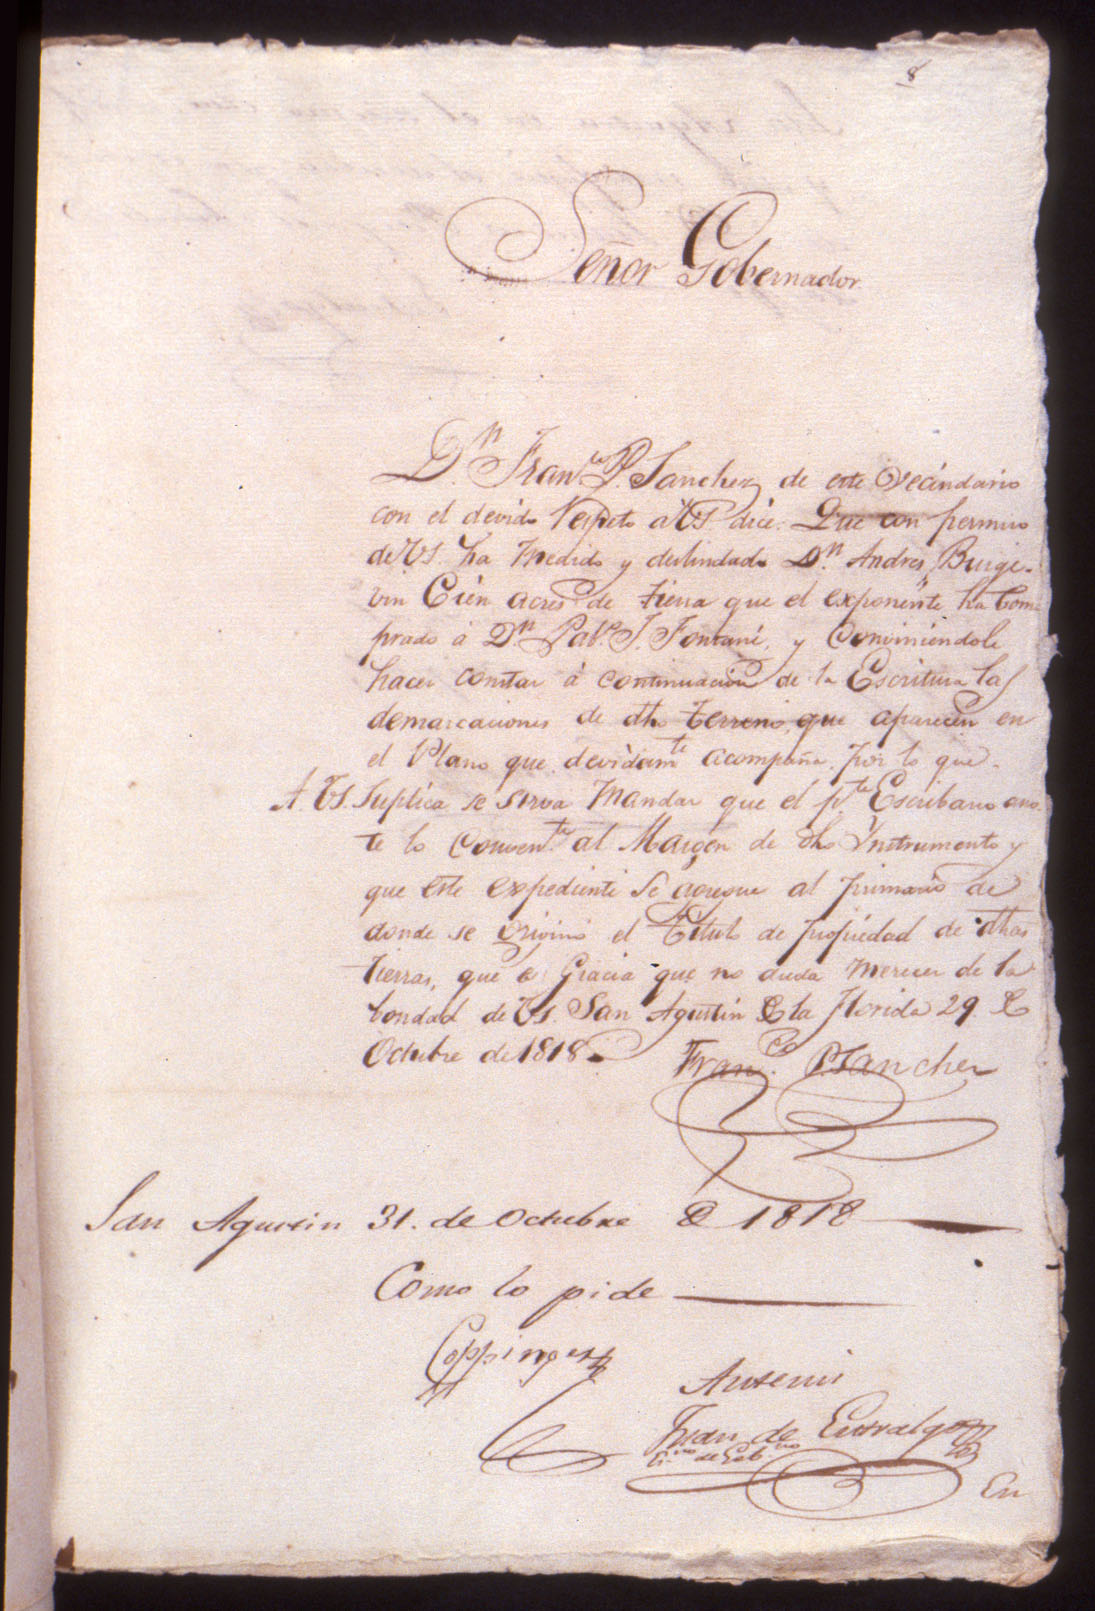 8
Señor Gobernador
Dn. Franco. P. Sanchez de este Vecindario
con el devido respeto a VS dice: Que con permiso
de VS. ha medido y deslindado Dn. Andres Burge-
vin Cién acres de tierra que el exponente ha Com
prado á Dn. Pablo. J. Fontané, y Conviniéndole
hacer constar á continuacion de la Escritura las
demarcaciones de dho terreno, que aparecen en
el Plano que devidamte acompaña, por lo que.
A. VS. Suplica se sirva mandar que el pte Escribano ano-
te lo Convente. al Margen de dho Ynstrumento y
que este expediente se agregue al primario de
donde se orivinó el titulo de propiedad de dhas
tierras, que es Gracia que no duda merecer de la
bondad de VS. San Agustin de la Florida 29. de
Octubre de 1818.
Franco. P. Sanchez
San Agustin 31. de Octubre de 1818
Como lo pide
Coppinger
Antemi
Juan de Entralgo
Esno. de Gobno.
En